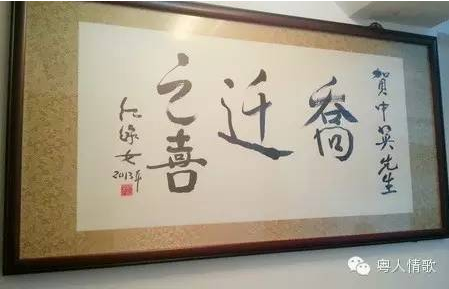 賀中英先生
喬迁之喜
红线女
2013年
粤人情歌